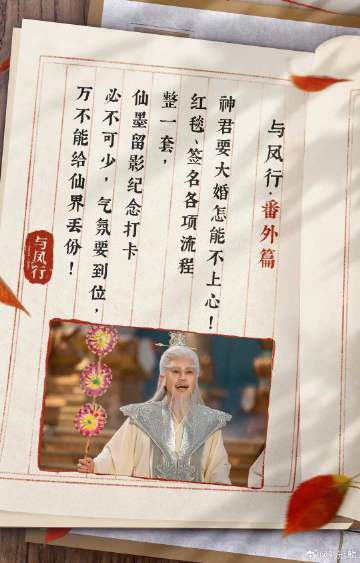 与凤行·番外篇
神君要大婚怎能不上心！
红毯、签名各项流程
整一套，
仙墨留影纪念打卡
必不可少，气氛要到位，
万不能给仙界丢份！
与凤行